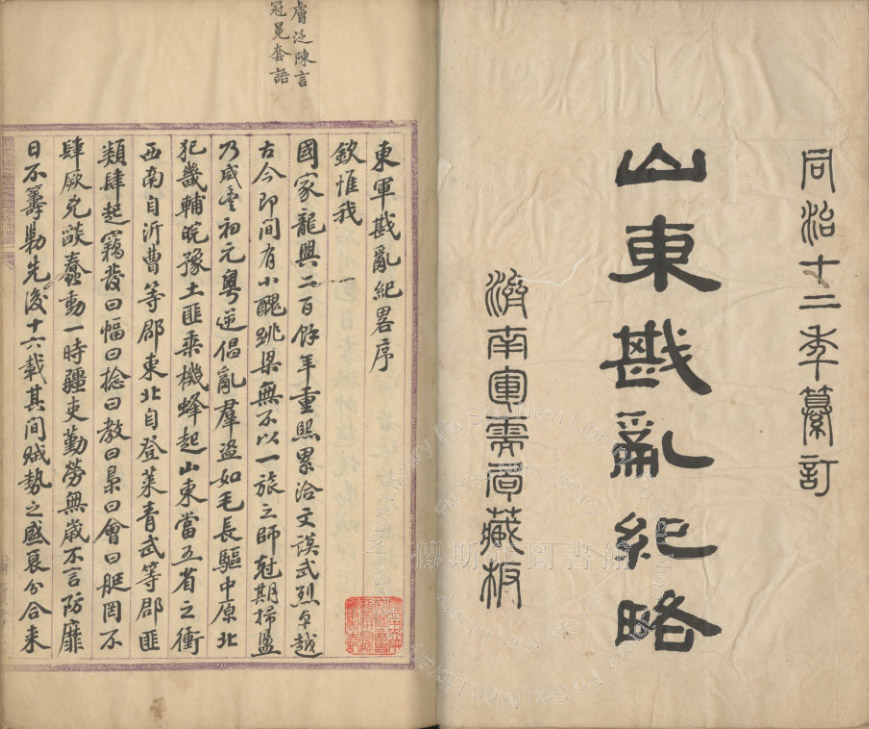 同治十二年纂訂
山東戡亂紀略
濟南軍需局藏板
膚泛陳言
冠冕套語
東軍戡亂紀畧序
欽惟我
國家龍興二百餘年重熙累洽文謨武烈卓越
古今即間有小醜跳梁無不以一旅之師尅期掃盪
乃咸豐初元粵逆倡亂羣盜如毛長驅中原北
犯畿輔皖豫土匪乘機蜂起山東當五省之衝
西南自沂曹等郡東北自登萊青武等郡匪
類肆起竊發曰幅曰捻曰教曰梟曰會曰艇罔不
肆厥兇燄蠢動一時疆吏勤勞無歲不言防靡
日不籌勦先後十六載其間賊勢之盛衰分合來
傅斯年圖書館
Fu Ssu-nien Library